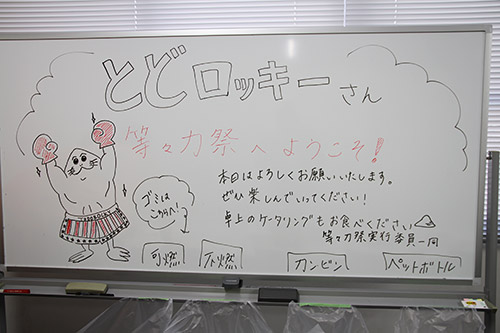 とどロッキーさん
等々力祭へようこそ!
本日はよろしくお願いいたします。
ぜひ楽しんでいってください!
卓上のケータリングもお食べください
等々力祭実行委員一同
ゴミは
こちらへ!
可燃
不燃
カンビン
ペットボトル